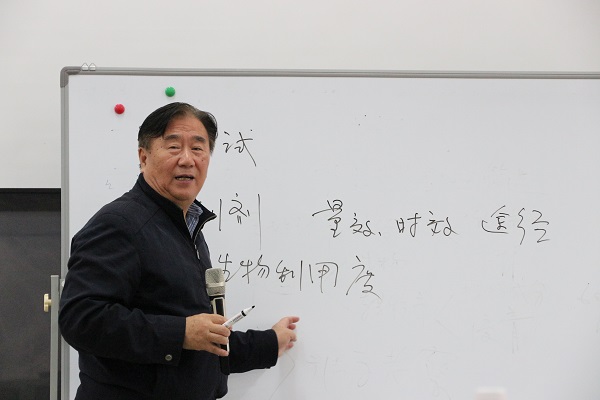 试
剂 量效、时效 途径
生物利用度